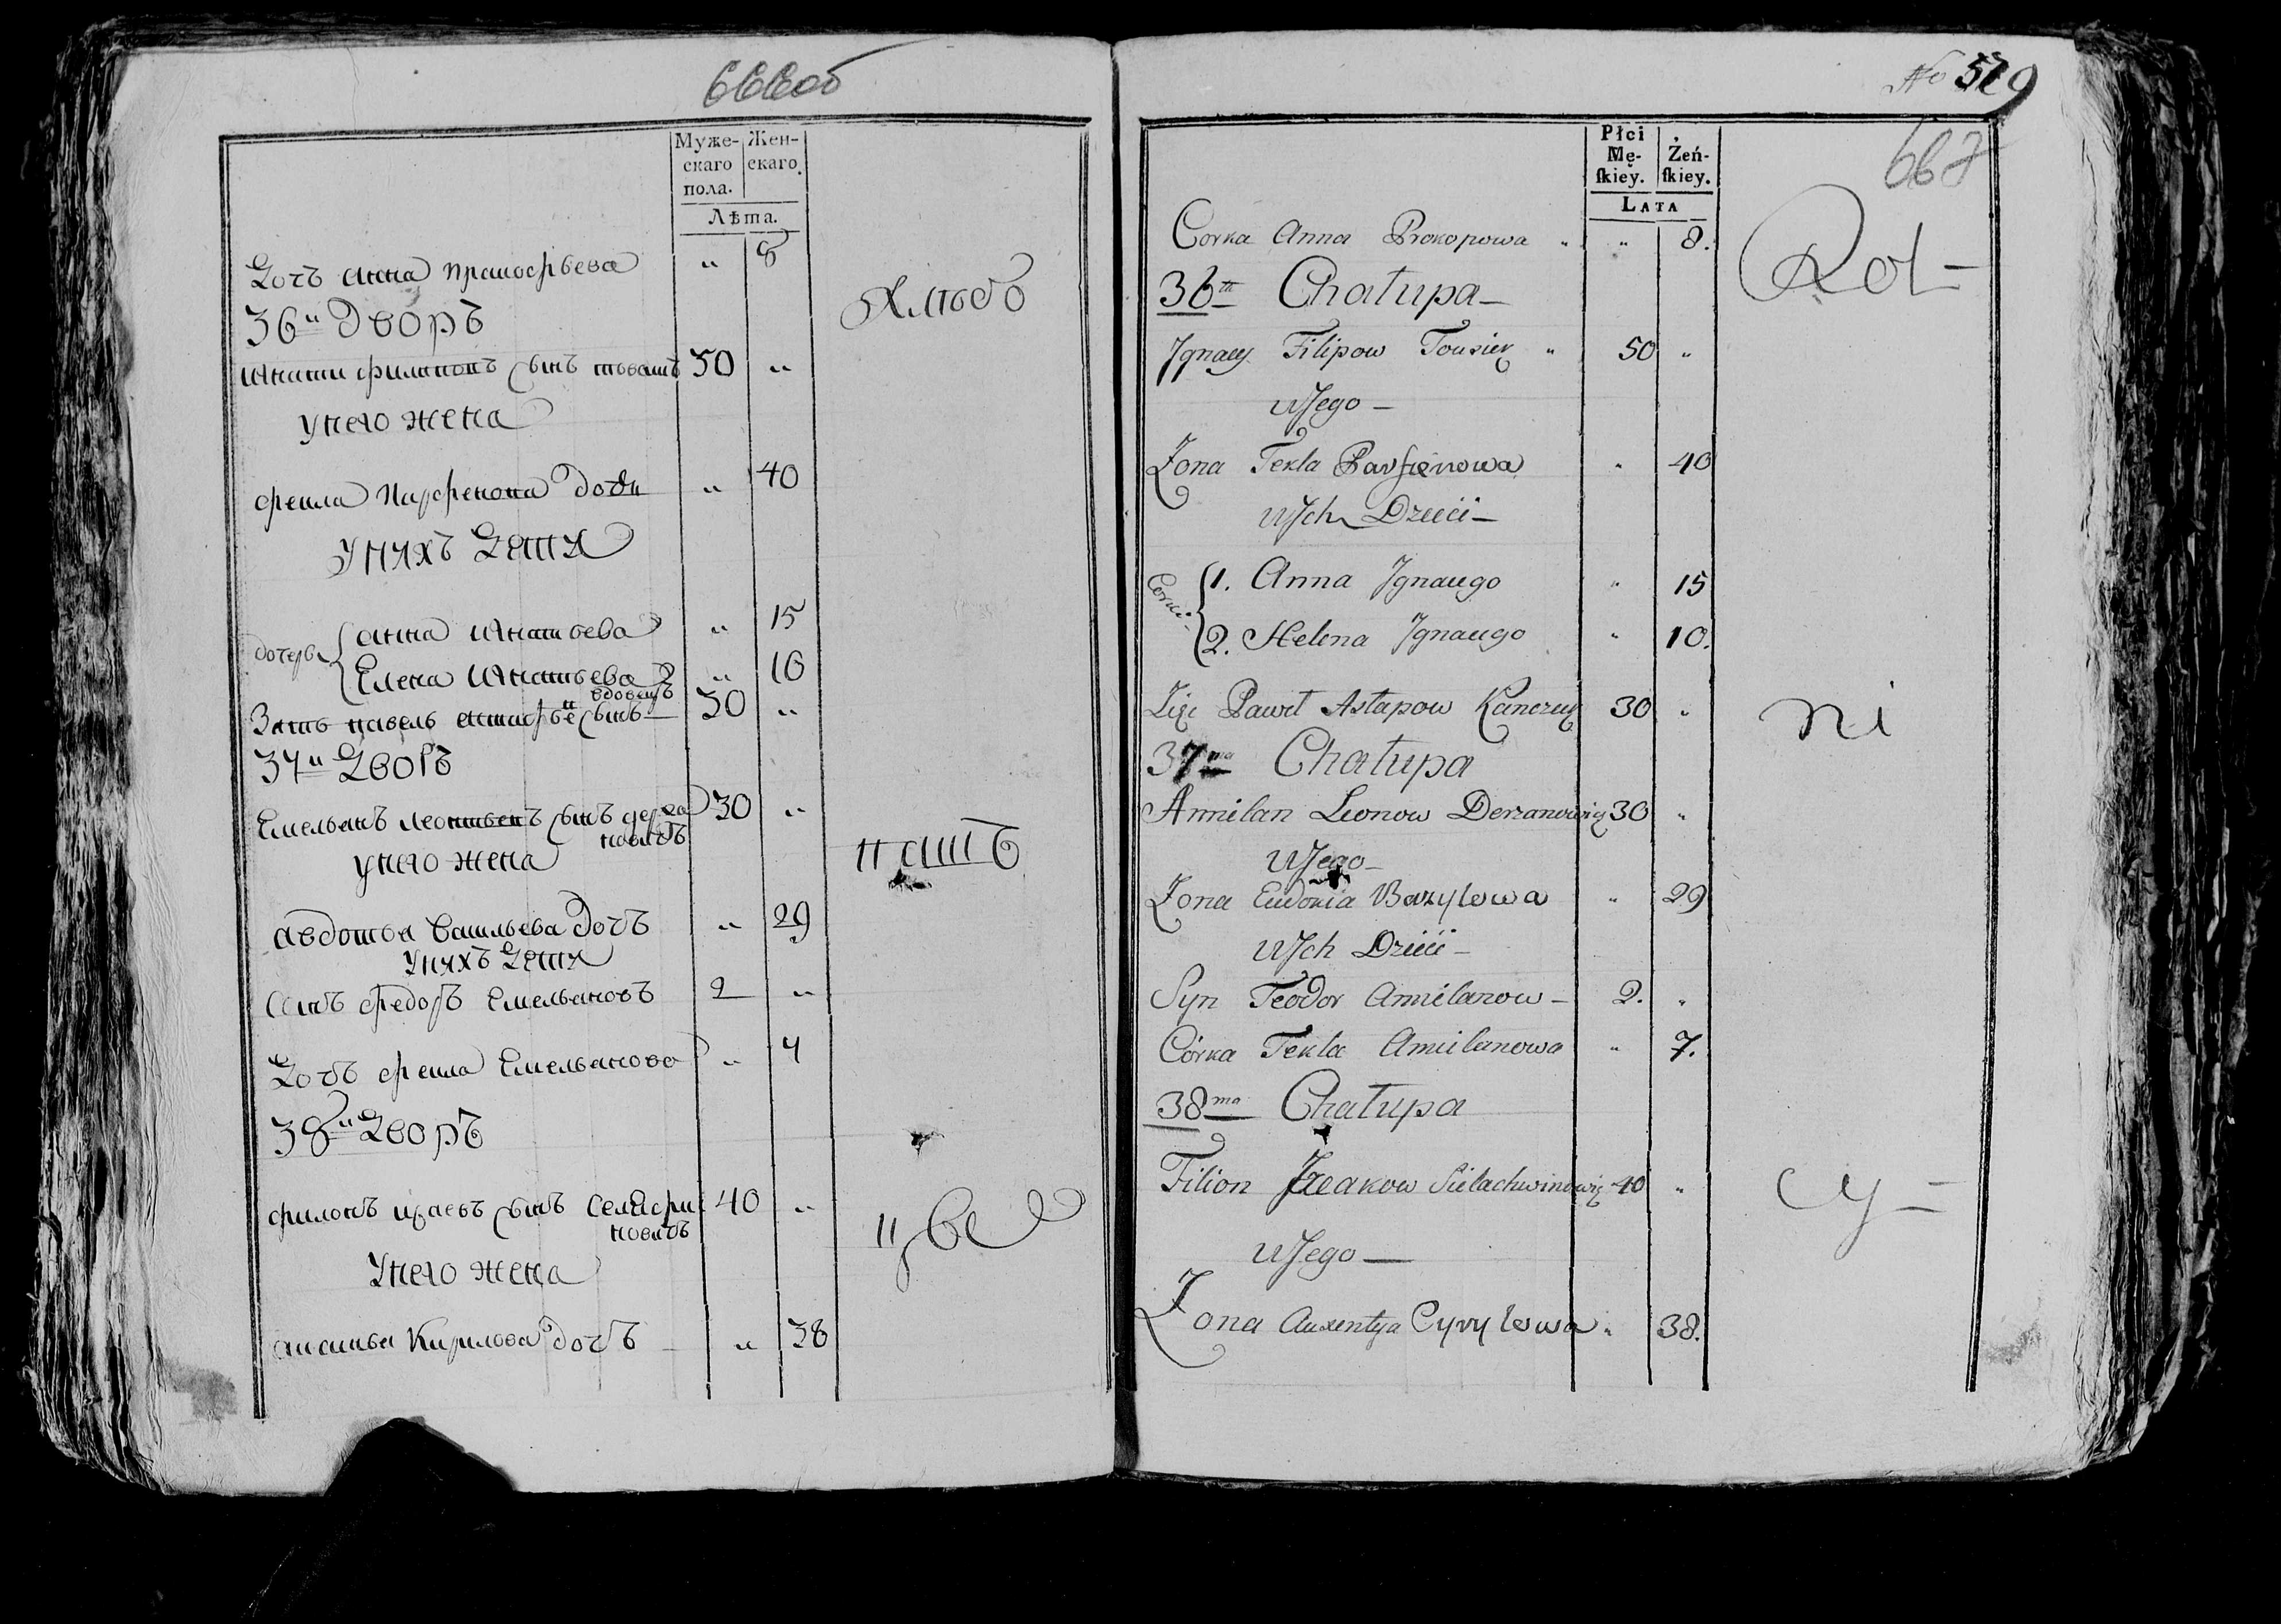 666об
Муже-
скаго
пола.
Жен-
скаго.
Лѣта.
Дочь Анна Прокофьева " 8
36й Дворъ
Хлѣбо
Игнатий Филиповъ сынъ 50 "
у него жена
Фекла Парфенова дочь " 40
у нихъ дети
дочерь
Анна Игнатьева " 15
Елена Игнатьева " 10
вдовецъ
Зять Павелъ сынъ 30 "
37й Дворъ
Емельянъ Леонтьевъ сынъ Держа 30 "
новичъ
пашъ
у него жена
Авдотья Васильева дочь " 29
у нихъ дети
Сынъ Федоръ Емельяновъ 2 "
Дочь Фекла Емельянова " 7
38й Дворъ
Филонъ сынъ Селяхви 40 "
новичъ
цъ
у него жена
Аксинья Кирилова дочь " 38
No 579
667
Płci
Mę-
ſkiey.
Żeń-
ſkiey.
LATA
Corka Anna Prokopowa " " 8.
Rol-
36ta Chałupa
Jgnacy Filipow " 50 "
U Jego
Zona Tekla Parfienowa " 40
U Jch Dzieci
Corki
1. Anna Jgnacego " 15
2. Helena Jgnacego " 10.
Zięć Paweł Astapow Kanczuk 30 "
ni
37ma Chałupa
Amilan Leonow Derzanowicz 30 "
U Jego
Zona Eudokia Bazylowa " 29
U Jch Dzieci
Syn Teodor Amilanow 2. "
Córka Tekla Amilanowa " 7.
38ma Chałupa
Filion Sielachwinowicz 40 "
cy
U Jego
Zona Auxentya Cyrylowa " 38.